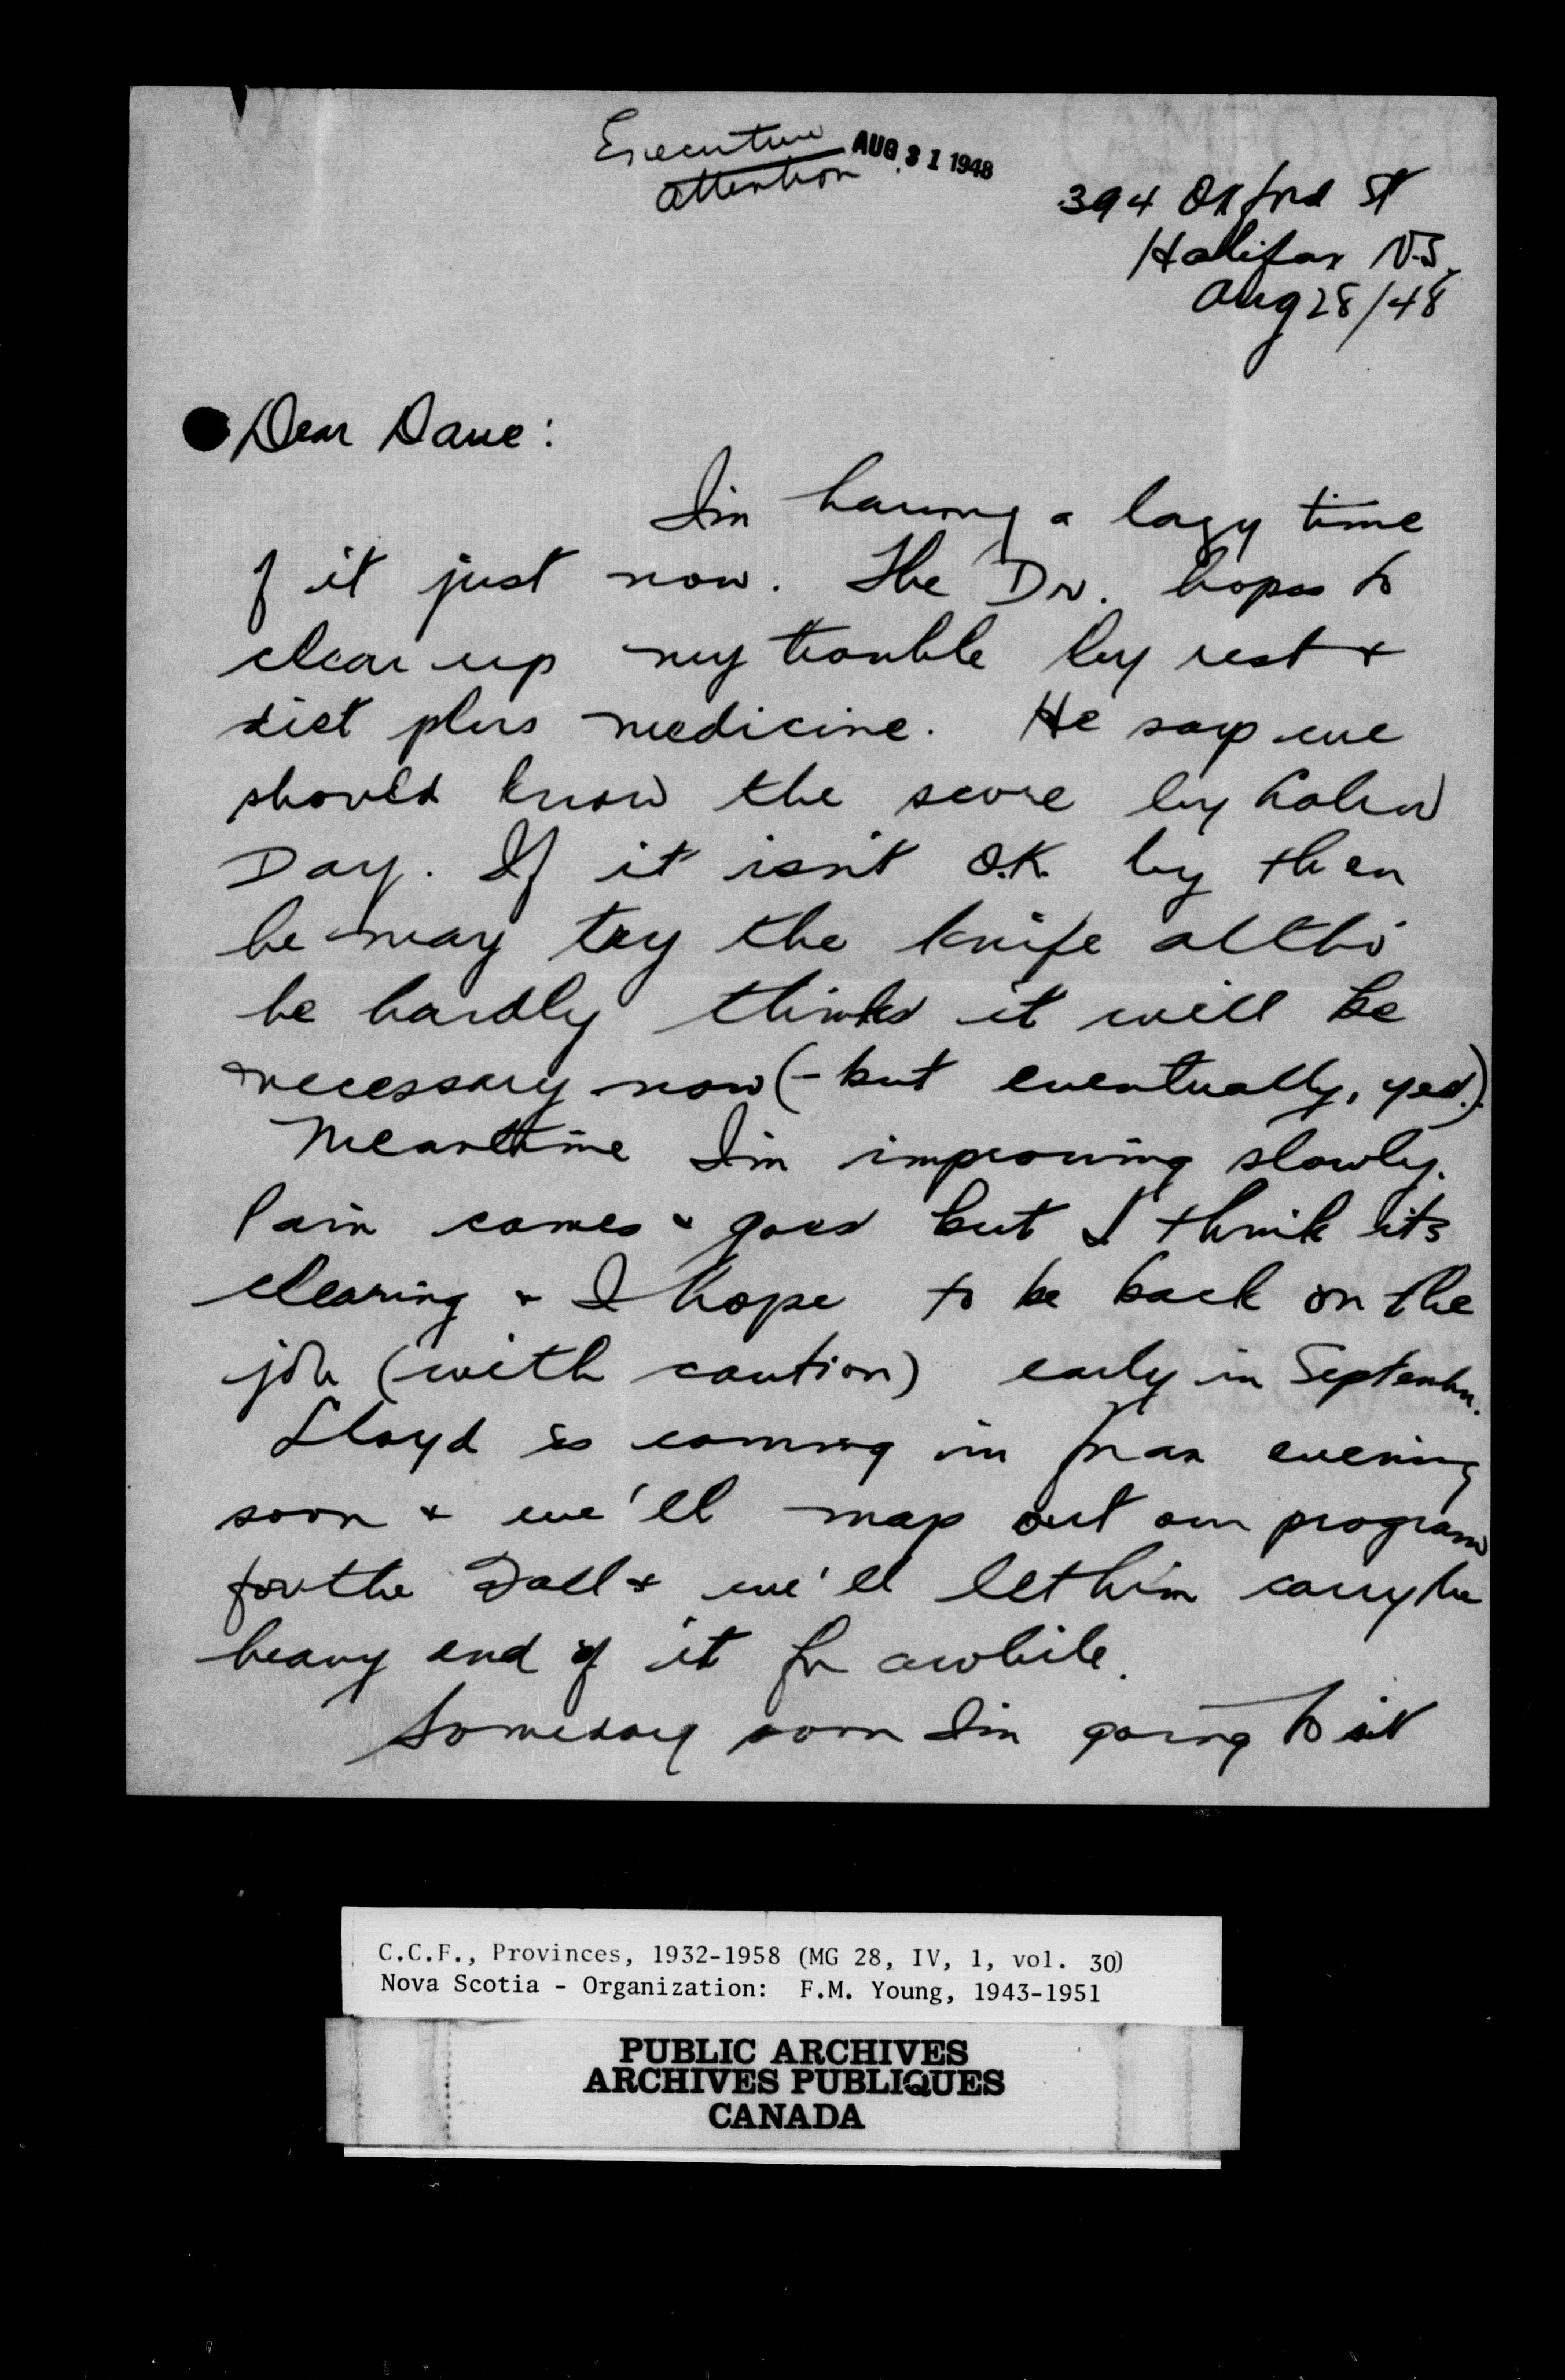 Executive AUG 31 1948
attention
394 Oxford St
Halifax N.S.
Aug 28/48
Dear Dave:
I'm having a lazy time
of it just now. The Dr. hopes to
clear up my trouble by rest &
diet plus medicine. He says we
should know the score by Labor
Day. If it isn't O.K. by then
he may try the knife altho'
he hardly thinks it will be
necessary now (- but eventually, yes.)
Meantime I'm improving slowly.
Pain comes & goes but I think its
clearing & I hope to be back on the
job (with caution) early in September.
Lloyd is coming in for an evening
soon & we'll map out our program
for the Fall & we'll let him carry the
heavy end of it for awhile.
Someday soon I'm going to sit
C.C.F., Provinces, 1932-1958 (MG 28, IV, 1, vol. 30)
Nova Scotia - Organization: F.M. Young, 1943-1951
PUBLIC ARCHIVES
ARCHIVES PUBLIQUES
CANADA